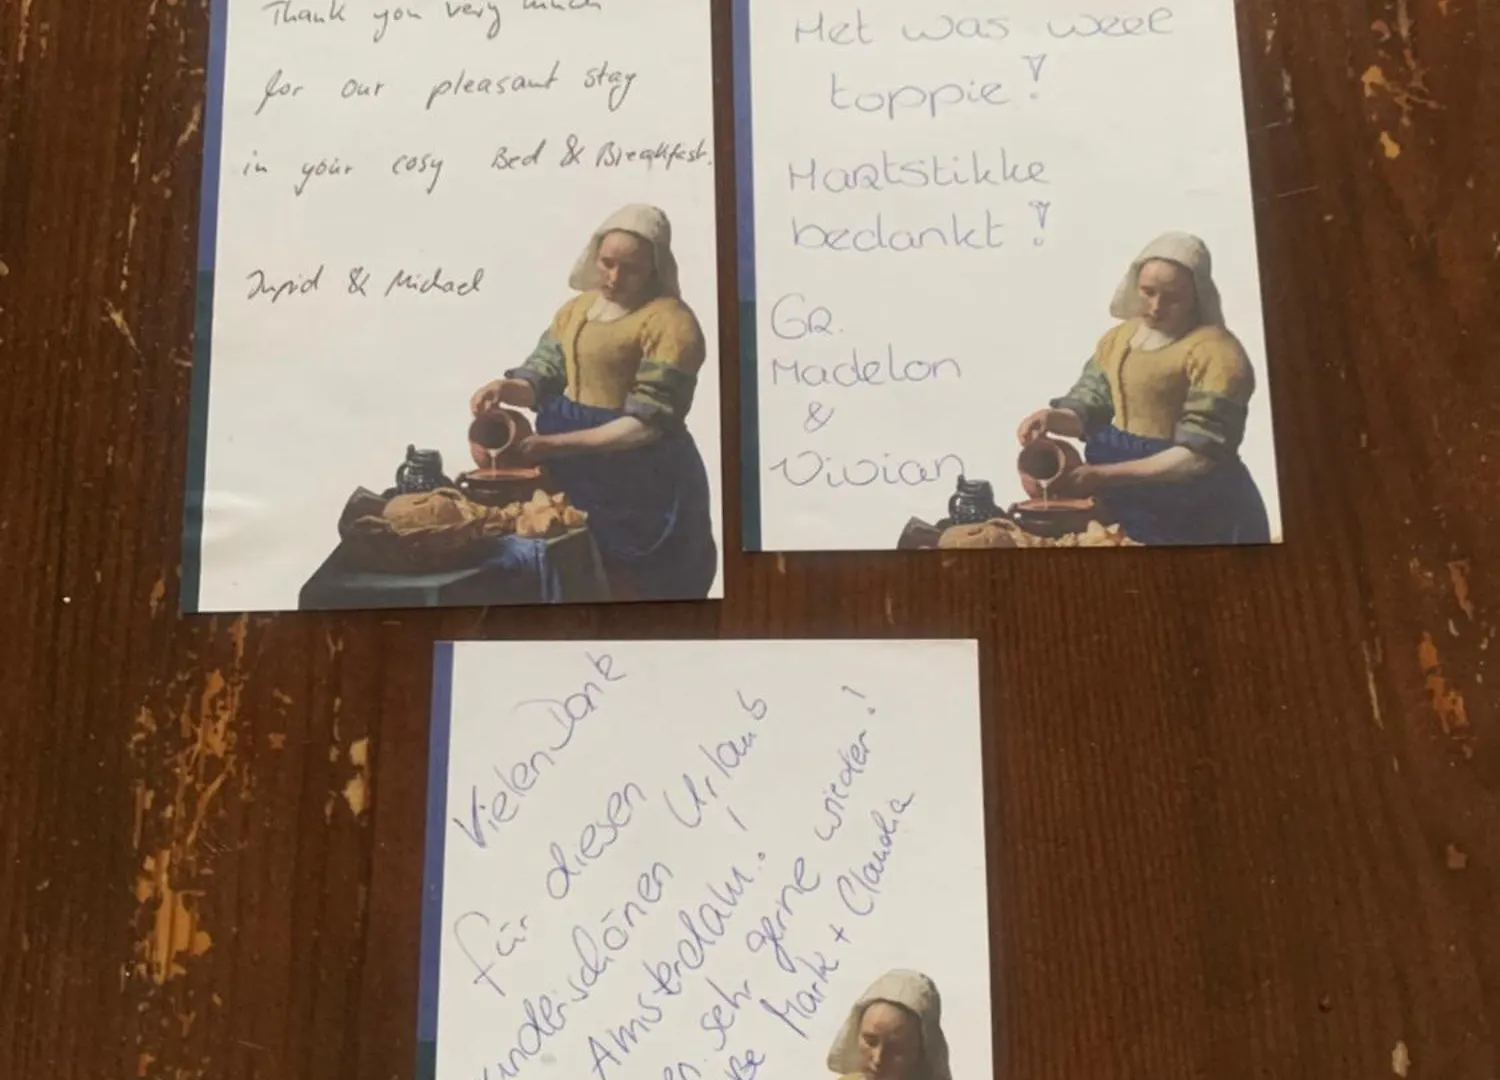 Thank you very much
for our pleasant stay
in your cosy Bed & Breakfast.
& Michael
Het was weer
toppie!
Hartstikke
bedankt!
GR.
Madelon
&
Vivian
Vielen Dank
für diesen
Urlaub
Amsterdam!
sehr gerne wieder!
Mark + Claudia